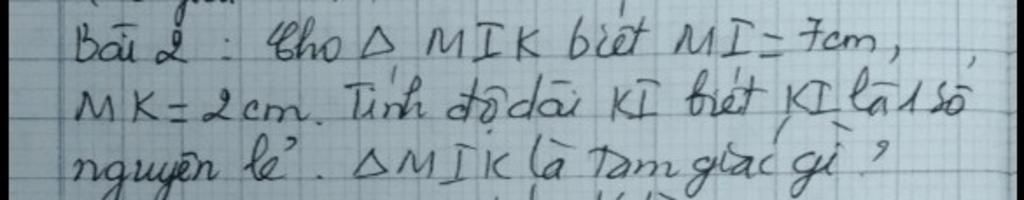 Bài 2 : Cho Δ MIK biết MI = 7cm,
MK = 2cm. Tính độ dài KI biết KI là 1 số
nguyên lẻ. ΔMIK là Tam giác gì ?